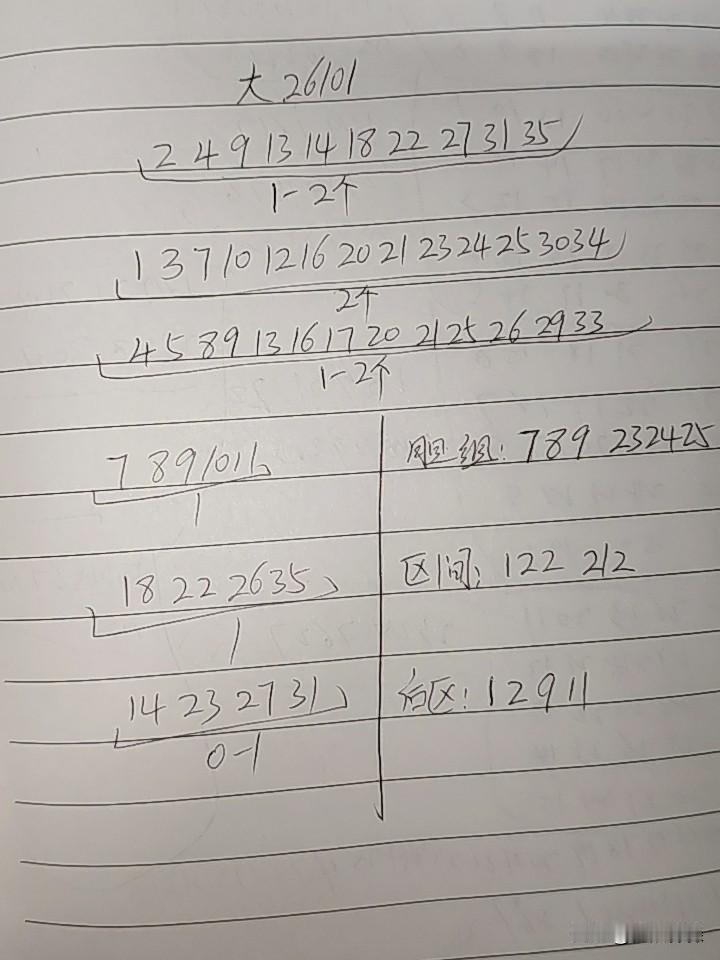 大26101
2 4 9 13 14 18 22 27 31 35
1-2个
1 3 7 10 12 16 20 21 23 24 25 30 34
2个
4 5 8 9 13 16 17 20 21 25 26 29 33
1-2个
7 8 9 10 11
1
胆组: 789 232425
18 22 26 35
1
区间: 122 212
14 23 27 31
0-1
后区: 1 2 9 11